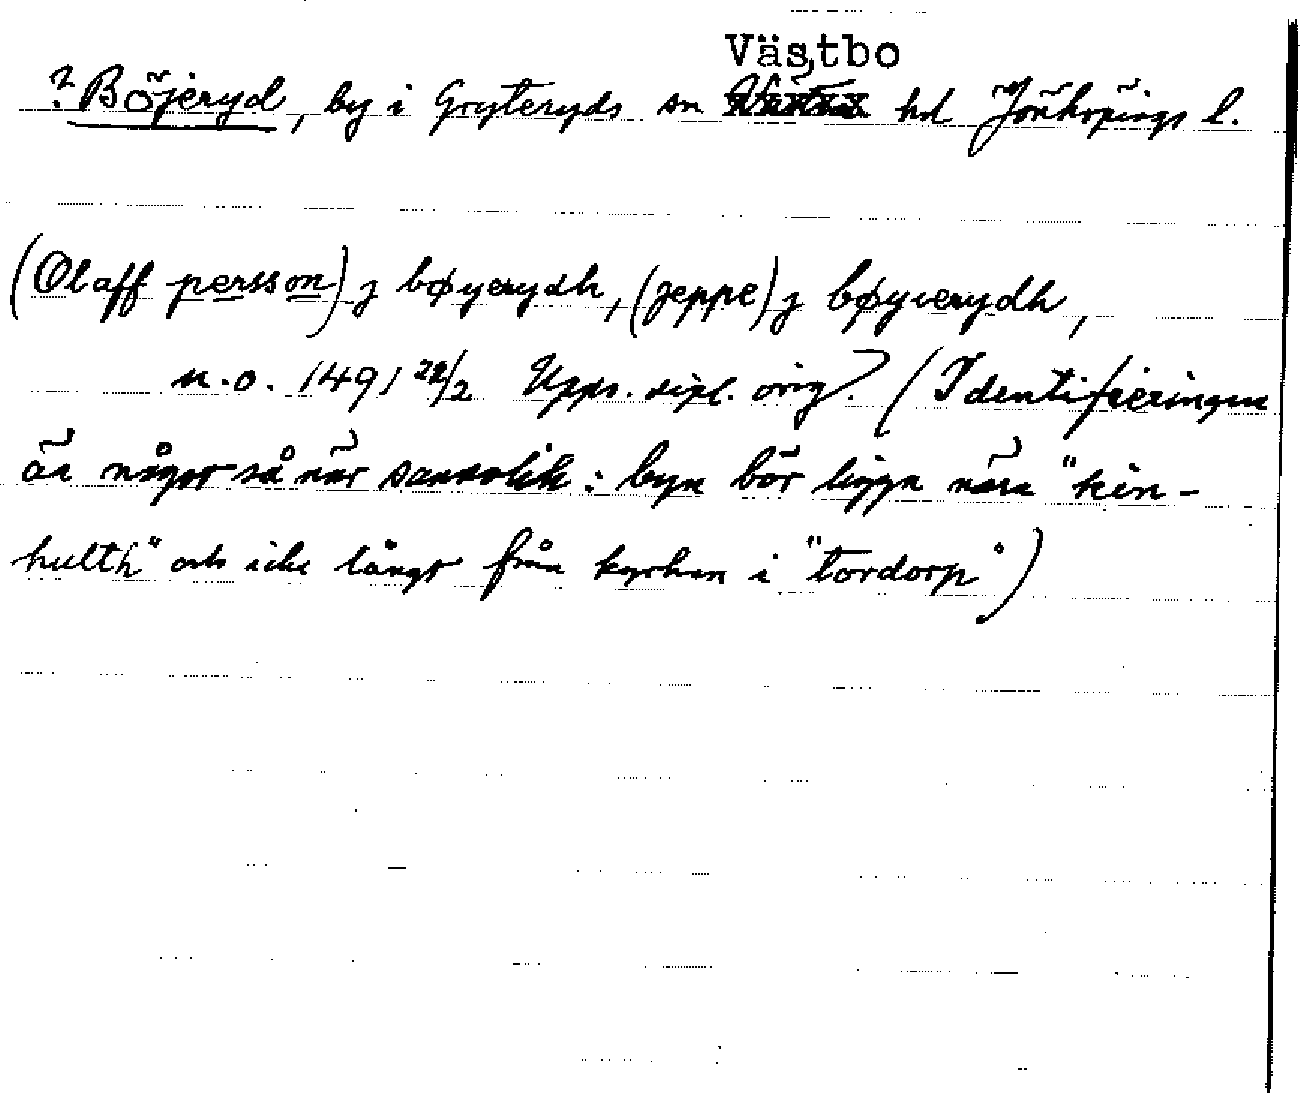 Västbo
? Böjeryd, by i Gryteryds sn hd Jönköpings l.
(Olaff persson) j bøyerydh, (jeppe) j bøyverydh,
n.o. 1491 22/2 Upps. dipl. orig. (Identifieringen
är något så när sannolik: byn bör ligga nära "kin-
hulth" och icke långt från kyrkan i "tordorp")